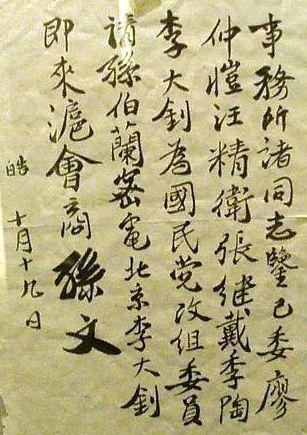 事務所諸同志鑒已委廖
仲愷汪精衛張继戴季陶
李大釗為國民党改组委員
請孫伯蘭密電北京李大釗
即來滬會商 孫文
皓
十月十九日